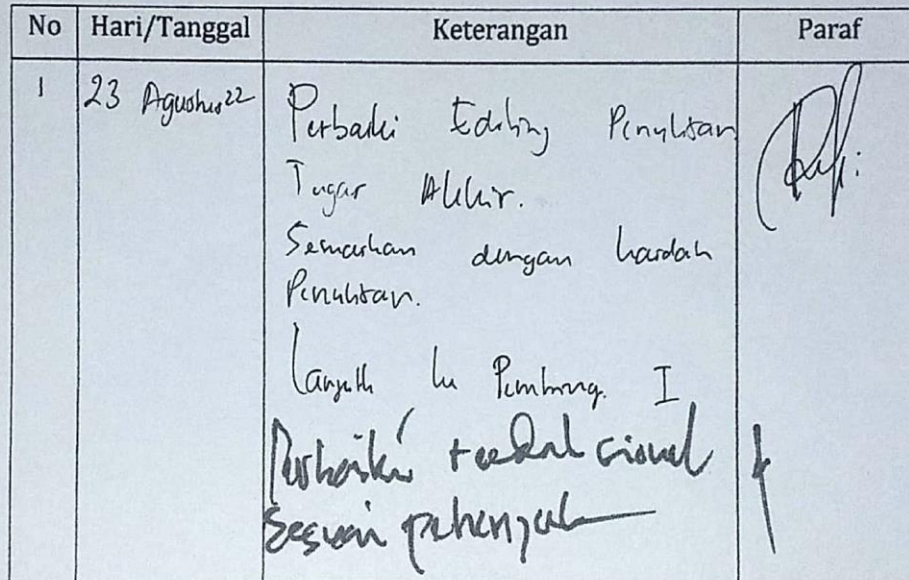 No Hari/Tanggal Keterangan Paraf
1 23 Agustus 22 Perbaiki Editing Penulisan
Tugas Akhir.
Sesuaikan dengan kaidah
Penulisan.
Lanjut ke Pembimbing I
Perbaiki redaksional
sesuai petunjuk